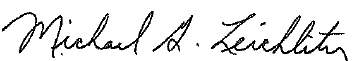 Michael A. Leichliter